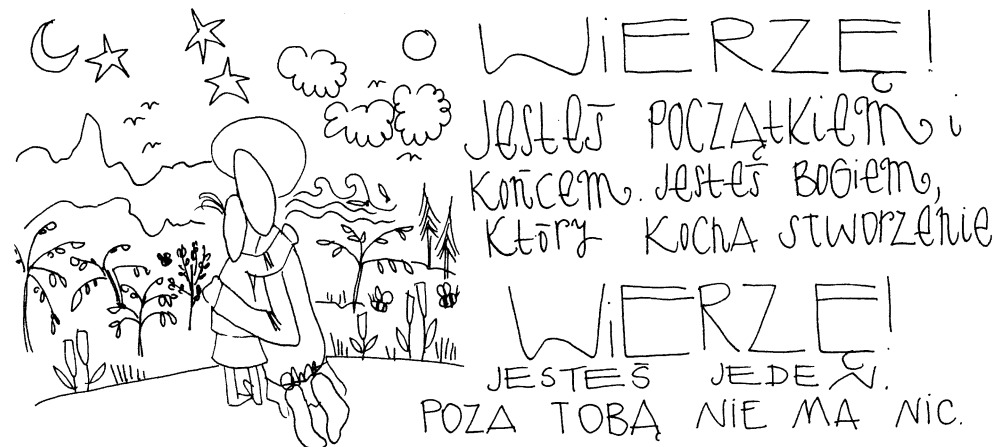 WiERZĘ!
JESTEŚ POCZĄtKiEM i
KOŃCEM. JESTEŚ BOGiEM,
KtÓRY KOCHA STWORZENIE
WiERZĘ!
JESTEŚ JEDEN.
POZA TOBĄ NIE MA NIC.